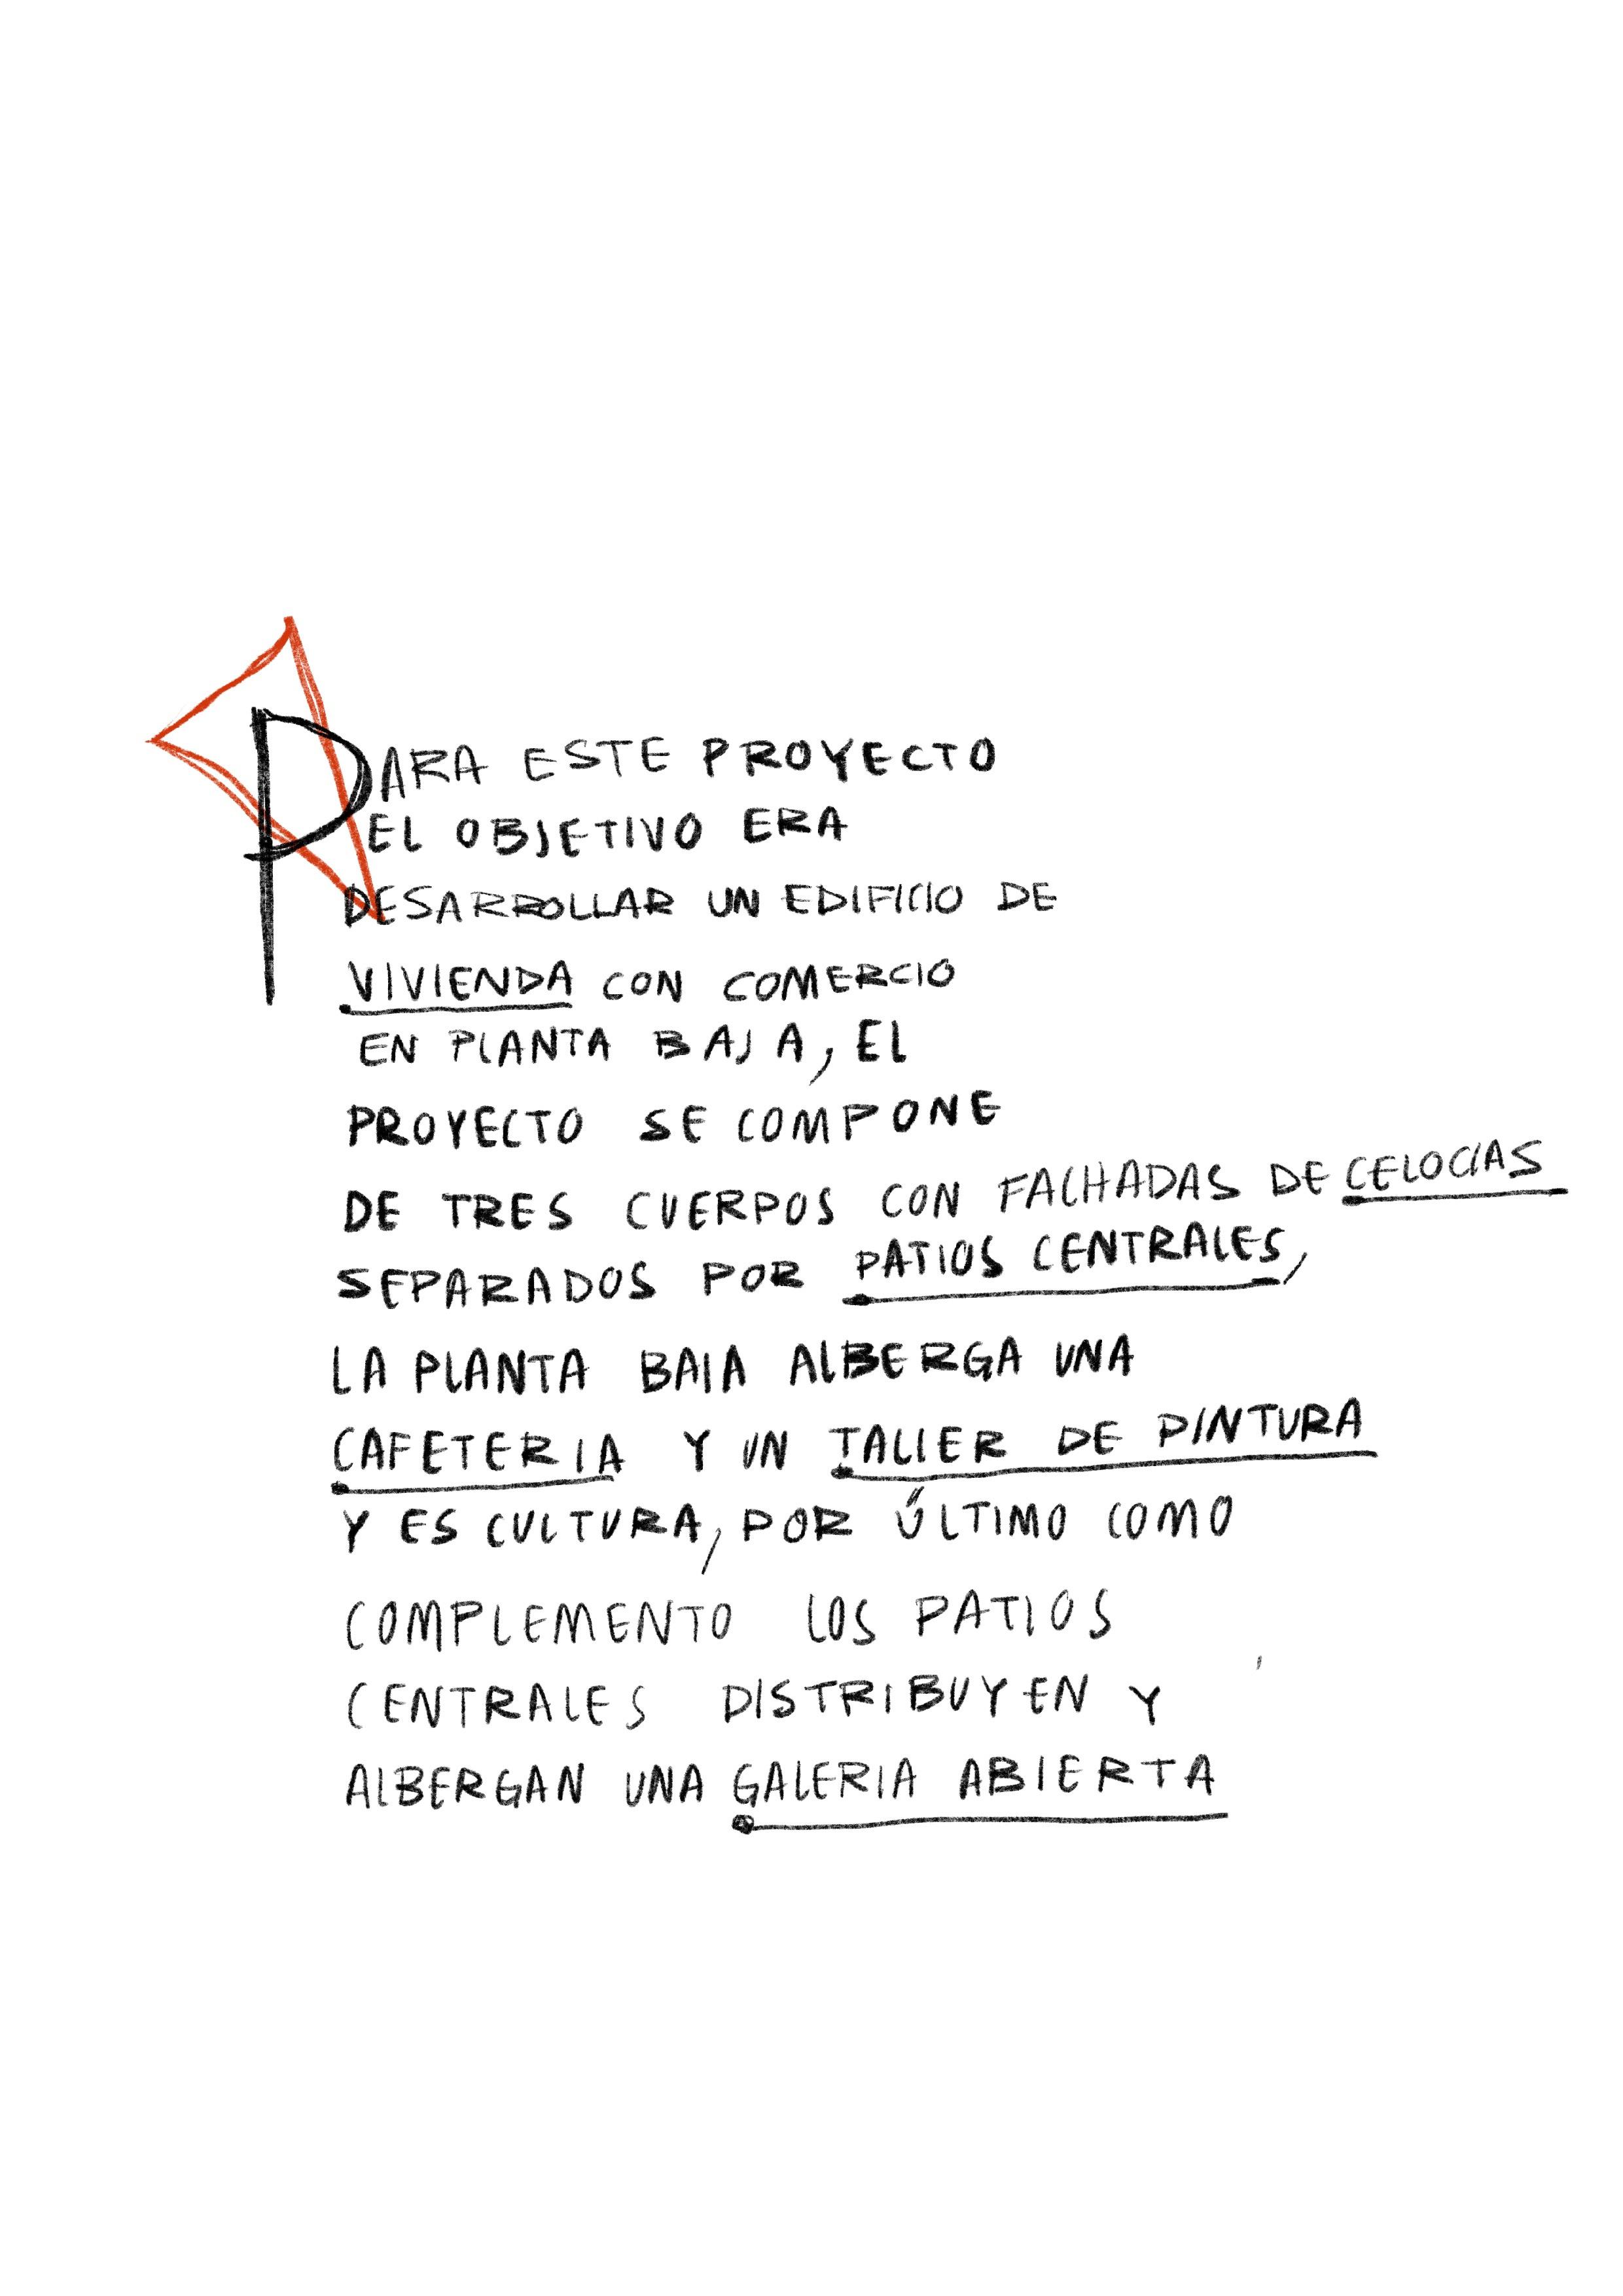 PARA ESTE PROYECTO
EL OBJETIVO ERA
DESARROLLAR UN EDIFICIO DE
VIVIENDA CON COMERCIO
EN PLANTA BAJA, EL
PROYECTO SE COMPONE
DE TRES CUERPOS CON FACHADAS DE CELOCIAS
SEPARADOS POR PATIOS CENTRALES,
LA PLANTA BAJA ALBERGA UNA
CAFETERIA Y UN TALLER DE PINTURA
Y ESCULTURA, POR ÚLTIMO COMO
COMPLEMENTO LOS PATIOS
CENTRALES DISTRIBUYEN Y
ALBERGAN UNA GALERIA ABIERTA